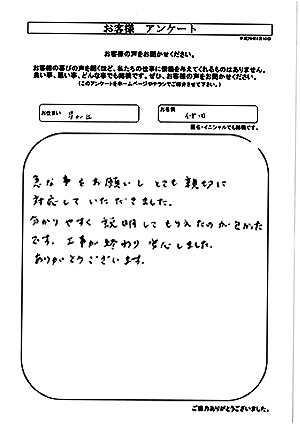 お客様 アンケート
お客様の声をお聞かせください。
お客様の喜びの声を聞くほど、私たちの仕事に価値を与えてくれるものはありません。
良い事、悪い事、どんな事でも結構です。ぜひ、お客様の声をお聞かせください。
(このアンケートをホームページやチラシでご紹介させて下さい。)
お住まい
お名前
匿名・イニシャルでも結構です。
急な事もお願いし とても親切に
対応して いただきました。
分かりやすく 説明して もらえたのが 良かった
です。工事が終わり 安心しました。
ありがとうございます。
ご協力ありがとうございました。